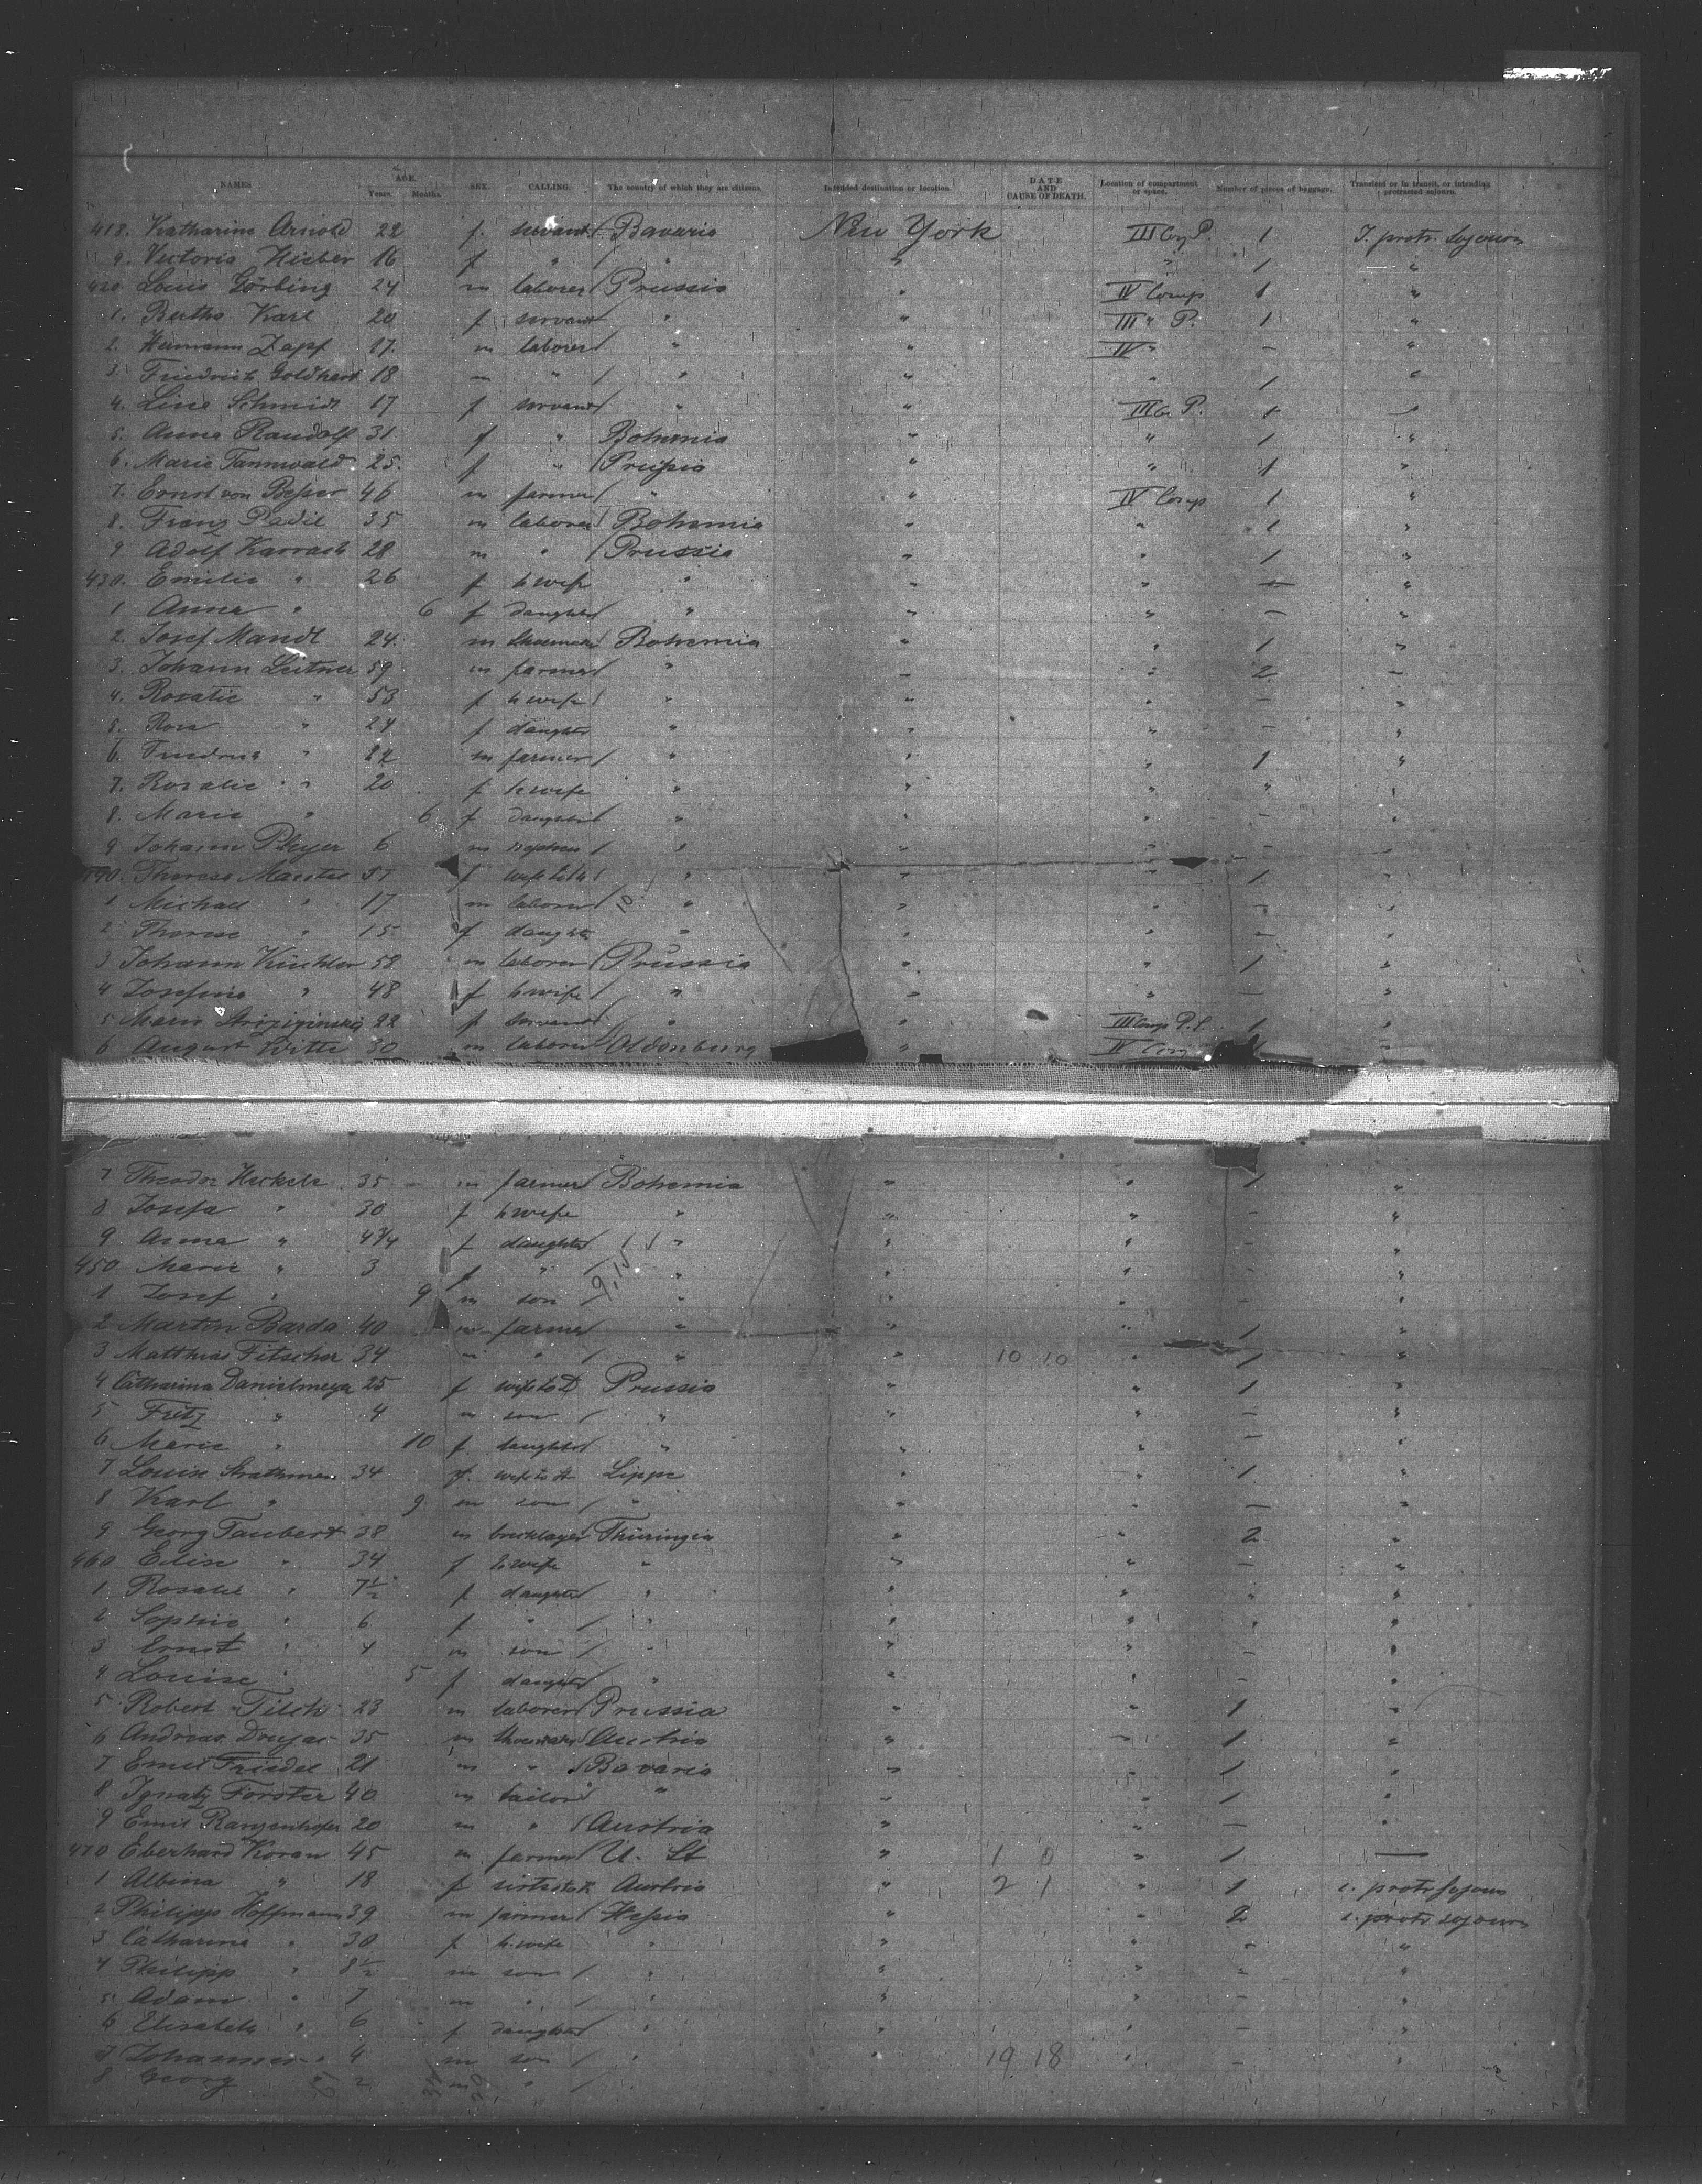 NAMES AGE. Years. Months. SEX. CALLING. The country of which they are citizens. Intended destination or location. DATE AND CAUSE OF DEATH. Location of compartment or space. Number of pieces of baggage. Transient or in transit, or intending protracted sojourn.
418. Katharine Arnold 22 f. servant Bavaria New York III Cp P. 1 I. protr. Sojourn
9. Victoria Hieber 16 f " " " " 1 "
420 Louis Görbing 24 m laborer Prussia " IV Comp 1 "
1. Bertha Karl 20 f servant " " III " P. 1 "
2. Hermann Zapf 17. m laborer " " IV " – "
3. Friedrich Goldhard 18 m " " " " 1 "
4. Lina Schmidt 17 f servant " " III Co P. 1 "
5. Anna Randolf 31 f " Bohemia " " 1 "
6. Marie Tannwald 25. f " Prussia " " 1 "
7. Ernst von Besser 46 m farmer " " IV Comp 1 "
8. Franz Padil 35 m laborer Bohemia " " 1 "
9 Adolf Karrasch 28 m " Prussia " " 1 "
430. Emilie " 26 f h wife " " " – "
1 Anna " 6 f daughter " " " – "
2. Josef Mandl 24. m shoemaker Bohemia " " 1 "
3. Johann Leitner 59 m farmer " " " 2 "
4. Rosalie " 53 f h wife " " " – "
5. Rosa " 24 f daughter " " " – "
6. Friedrich " 22 m farmer " " " 1 "
7. Rosalie " 20 f h wife " " " " "
8. Marie " 6 f daughter " " " – "
9 Johann Pleyer 6 m nephew " " " – "
440. Therese 57 f wife to " " " 1 "
1 Michael " 17 m laborer 10 " " " – "
2 Therese " 15 f daughter " " " – "
3 Johann 58 m laborer Prussia " " 1 "
4 Josefine " 48 f h wife " " " – "
5 Marie 22 f servant " " III Comp P. S. 1 "
6 August Witte 30 m laborer Oldenburg " IV Comp "
7 Theodor Heckele 35 m farmer Bohemia " " 1 "
8 Josefa " 30 f h wife " " " – "
9 Anna " 4 3/4 f daughter " " " – "
450 Marie " 3 f " 9,15 " " " – "
1 Josef " 9 m son " " " – "
2 Martin Barda 40 m farmer " " " 1 "
3 Matthias Fitscher 34 m " " " 10 10 " 1 "
4 Catharina Danielmeyer 25 f wife to D Prussia " " 1 "
5 Fritz " 4 m son " " " – "
6 Marie " 10 f daughter " " " – "
7 Louise Strathman 34 f. wife to Lippe " " 1 "
8 Karl " 9 m son " " " – "
9 Georg Taubert 38 m bricklayer Thüringia " " 2 "
460 Elise " 34 f h wife " " " – "
1 Rosalie " 7 1/2 f daughter " " " " "
2 Sophie " 6 f " " " " – "
3 Ernst " 4 m son " " " – "
4 Louise " 5 f daughter " " " – "
5 Robert Tilch 23 m laborer Prussia " " 1 "
6 Andreas 35 m shoemaker Austria " " 1 "
7 Emil Friedel 21 m " Bavaria " " 1 "
8 Ignatz Forster 40 m tailor " " " 1 "
9 Emil Ranzenhofer 20 m " Austria " " – "
470 Eberhard Koran 45 m farmer U. St " 1 0 " 1 —
1 Albina " 18 f sister to K Austria " 2 1 " 1 i. protr sojourn
2 Philipp Hoffmann 39 m farmer Hessia " " 2 i. protr sojourn
3 Catharina " 30 f h. wife " " " – "
4 Philipp " 8 1/2 m son " " " – "
5 Adam " 7 m " " " " – "
6 Elisabeth " 6 f daughter " " " – "
7 Johannes " 4 m son " " 19 18 " – "
8 Georg 2 m "